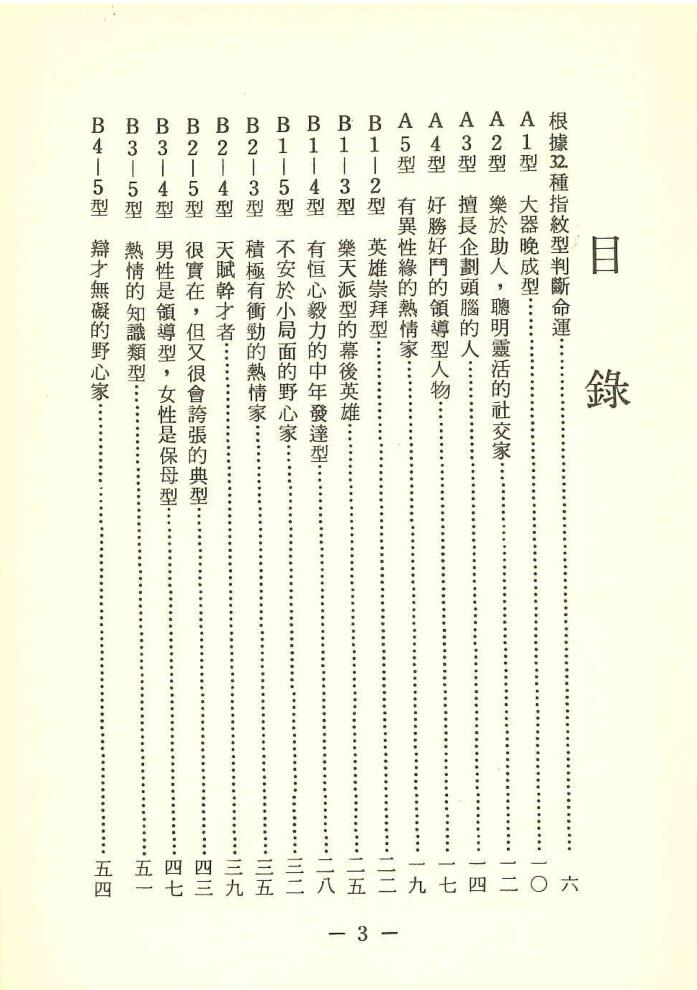 目錄
根據32種指紋型判斷命運……六
A1型 大器晚成型……一〇
A2型 樂於助人，聰明靈活的社交家……一二
A3型 擅長企劃頭腦的人……一四
A4型 好勝好鬥的領導型人物……一七
A5型 有異性緣的熱情家……一九
B1—2型 英雄崇拜型……二二
B1—3型 樂天派型的幕後英雄……二五
B1—4型 有恒心毅力的中年發達型……二八
B1—5型 不安於小局面的野心家……三二
B2—3型 積極有衝勁的熱情家……三五
B2—4型 天賦幹才者……三九
B2—5型 很實在，但又很會誇張的典型……四三
B3—4型 男性是領導型，女性是保母型……四七
B3—5型 熱情的知識類型……五一
B4—5型 辯才無礙的野心家……五四
— 3 —